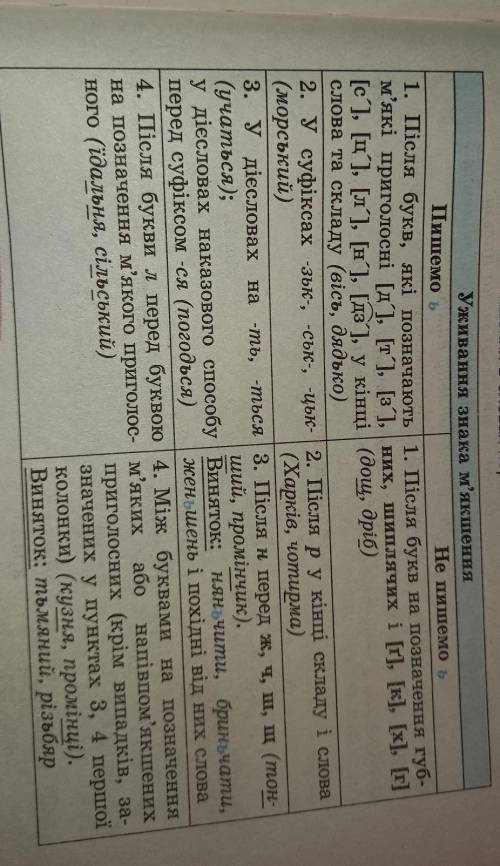 Уживання знака м'якшення
Пишемо ь
1. Після букв, які позначають
м'які приголосні [д´], [т´], [з´],
[с´], [ц´], [л´], [н´], [дз´], у кінці
слова та складу (вісь, дядько)
2. У суфіксах -зьк-, -ськ-, -цьк-
(морський)
3. У дієсловах на -ть, -ться
(учаться);
у дієсловах наказового способу
перед суфіксом -ся (погодься)
4. Після букви л перед буквою
на позначення м'якого приголос-
ного (їдальня, сільський)
Не пишемо ь
1. Після букв на позначення губ-
них, шиплячих і [ґ], [к], [х], [г]
(дощ, дріб)
2. Після р у кінці складу і слова
(Харків, чотирма)
3. Після н перед ж, ч, ш, щ (тон-
ший, промінчик).
Виняток: няньчити, бриньчати,
женьшень і похідні від них слова
4. Між буквами на позначення
м'яких або напівпом'якшених
приголосних (крім випадків, за-
значених у пунктах 3, 4 першої
колонки) (кузня, промінці).
Виняток: тьмяний, різьбяр